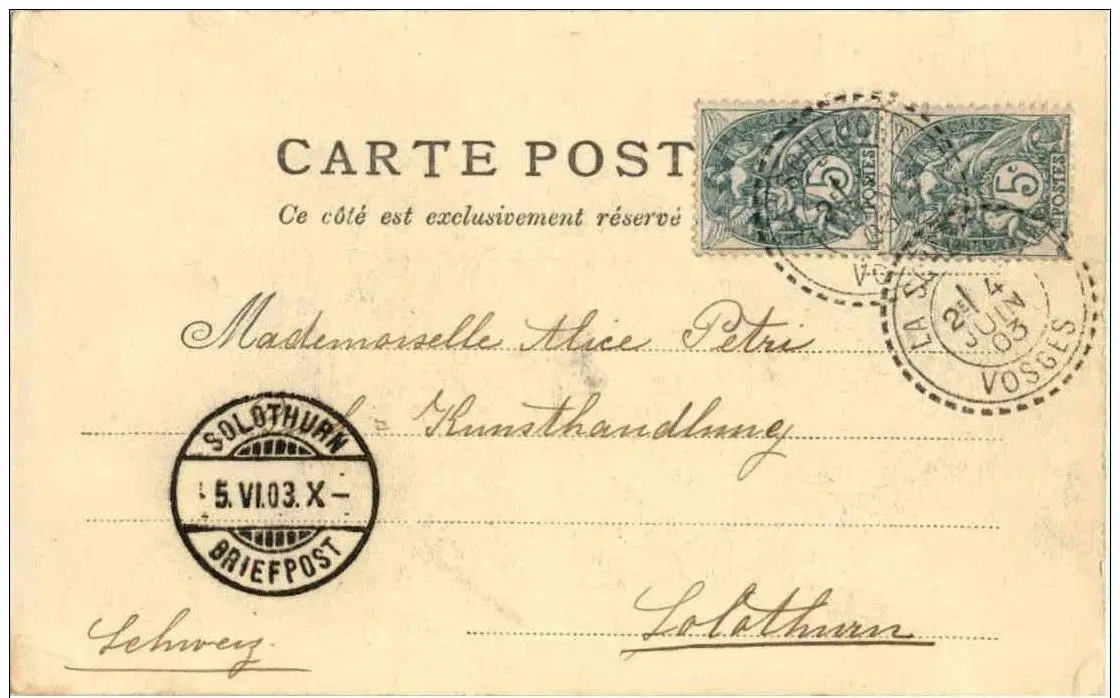 CARTE POST
Ce côté est exclusivement réservé
5c POSTES
5c POSTES
VOSGES
2E 4
JUIN
03
Mademoiselle Alice Petri
Kunsthandlung
SOLOTHURN
5. VI. 03. X –
BRIEFPOST
Solothurn
Schweiz